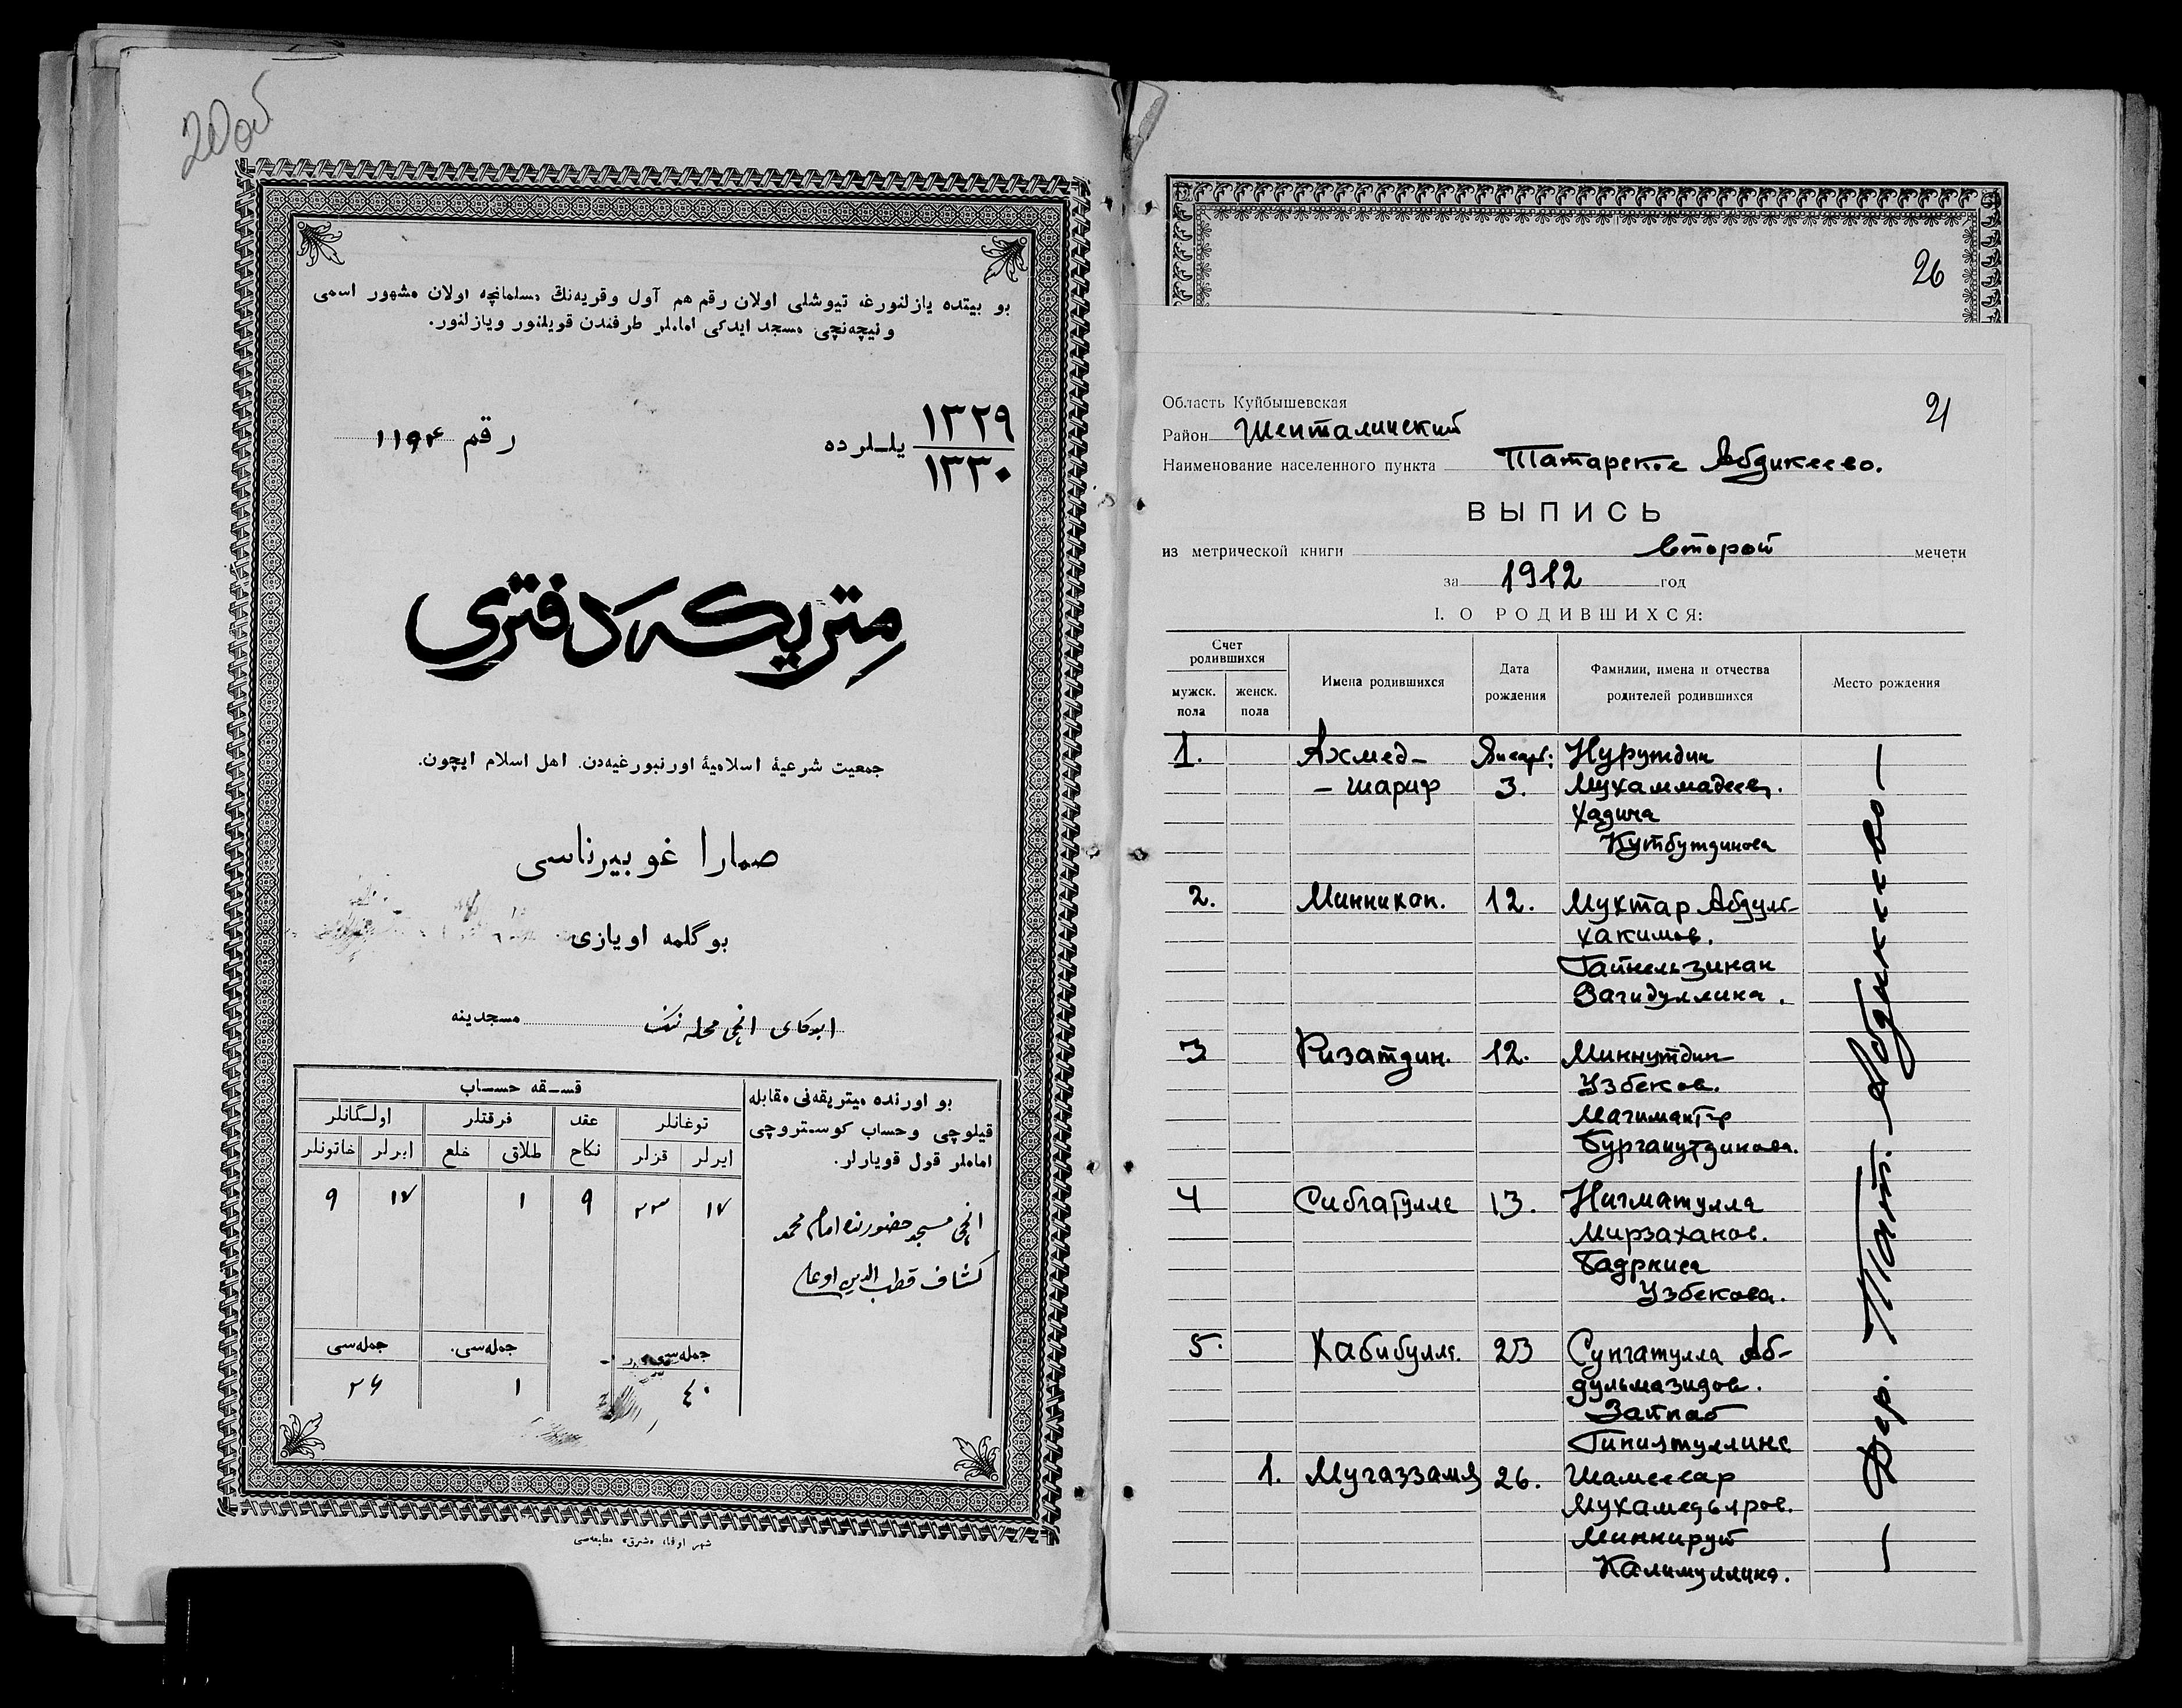 20об
بو بیتده یازلنورغه تیوشلی اولان رقم هم آول وقریه‌نڭ مسلمانچه اولان مشهور اسمی
ونیچه‌نچی مسجد ایدکی اماملر طرفندن قویلنور ویازلنور.
۱۳۲۹
۱۳۳۰
یلـلرده
رقم ۱۱۹۴
متریکه دفتری
جمعیت شرعیهٔ اسلامیهٔ اورنبورغیه‌دن. اهل اسلام ایچون.
صمارا غوبیرناسی
بوگلمه اویازی
ابدکای ۲نچی محله ننڭ مسجدینه
قسـقه حسـاب
توغانلر
عقد نکاح
فرقتلر
اولـگانلر
ایرلر
قزلر
طلاق
خلع
ایرلر
خاتونلر
۱۷
۲۳
۹
۱
۱۷
۹
جمله‌سی
جمله‌سی.
جمله‌سی
٤٠
۱
۲۶
بو اورنده میتریقه‌نی مقابله
قیلوچی وحساب کوستروچی
اماملر قول قویارلر.
۲نچی مسجد حضورنده امام محمد
کشاف قطب الدین اوغلی
شهر اوفا، «شرق» مطبعه‌سی
26
21
Область Куйбышевская
Район Шенталинский
Наименование населенного пункта Татарское Абдикеево.
ВЫПИСЬ
из метрической книги второй мечети
за 1912 год
I. О РОДИВШИХСЯ:
Счет родившихся
мужск. пола
женск. пола
Имена родившихся
Дата рождения
Фамилии, имена и отчества родителей родившихся
Место рождения
1. Ахмед- Январь: Нурутдин
- шариф 3. Мухаммадеев.
Хадича
Кутбутдинова
2. Минникан. 12. Мухтар Абдул-
хакимов.
Гайнельзинан
Загидуллина.
3 Ризатдин. 12. Миннутдин
Узбеков.
Магиманур
Бурганутдинова.
4 Сибгатулла 13. Нигматулла
Мирзаханов.
Бадрниса
Узбекова.
5. Хабибулла. 23 Сунгатулла Аб-
дульмазидов.
Зайнаб
Гиниятуллина
1. Мугаззамя 26. Шамсевар
Мухамедьяров.
Миннируй
Калимуллина.
— Дер. Тат. Абдикеево —